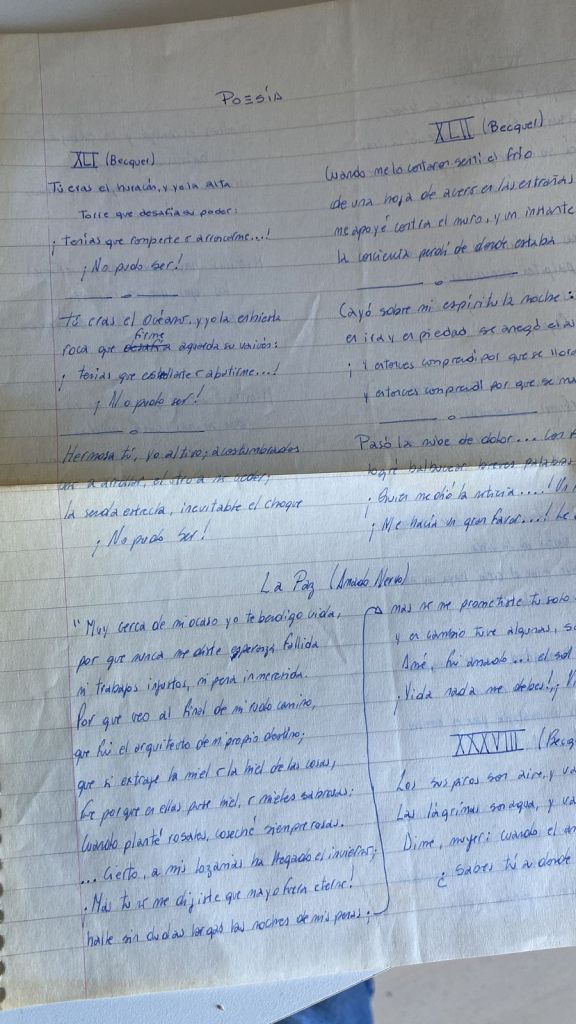 POESÍA
XLI (Becquer)
Tú eras el huracán, y yo la alta
Torre que desafía su poder:
¡Tenías que romperte o arrancarme...!
¡No pudo ser!
Tú eras el Océano, y yo la enhiesta
firme
roca que aguarda su vaivén:
¡tenías que estrellarte o abatirme...!
¡No pudo ser!
Hermosa tú, yo altivo; acostumbrados
uno a arrollar, el otro a no ceder;
la senda estrecha, inevitable el choque
¡No pudo ser!
XLII (Becquer)
Cuando me lo contaron sentí el frío
de una hoja de acero en las entrañas
me apoyé contra el muro, y un instante
la conciencia perdí de donde estaba
Cayó sobre mi espíritu la noche:
en ira y en piedad se anegó el
¡Y entonces comprendí por que se
y entonces comprendí por que se
Pasó la nube de dolor... con
logré balbucear breves palabras
¿Quien me dió la noticia....!
¡Me hacía un gran favor...!
La Paz (Amado Nervo)
"Muy cerca de mi ocaso yo te bendigo vida,
por que nunca me diste esperanza fallida
ni trabajos injustos, ni pena inmerecida.
Por que veo al final de mi rudo camino,
que fui el arquitecto de mi propio destino;
que si extraje la miel o la hiel de las cosas,
fue porque en ellas puse hiel, o mieles sabrosas:
Cuando planté rosales, coseché siempre rosas.
... Cierto, a mis lozanías ha llegado el invierno;
¡Mas tu no me dijiste que mayo fuera eterno!
halle sin dudas largas las noches de mis penas;
mas no me prometiste tu solo
y en cambio tuve algunas,
Amé, fui amado... el sol
¡Vida nada me debes!¡
XXXVIII
Los suspiros son aire, y
Las lágrimas son agua, y
Dime, mujer: cuando el
¿sabes tú a donde